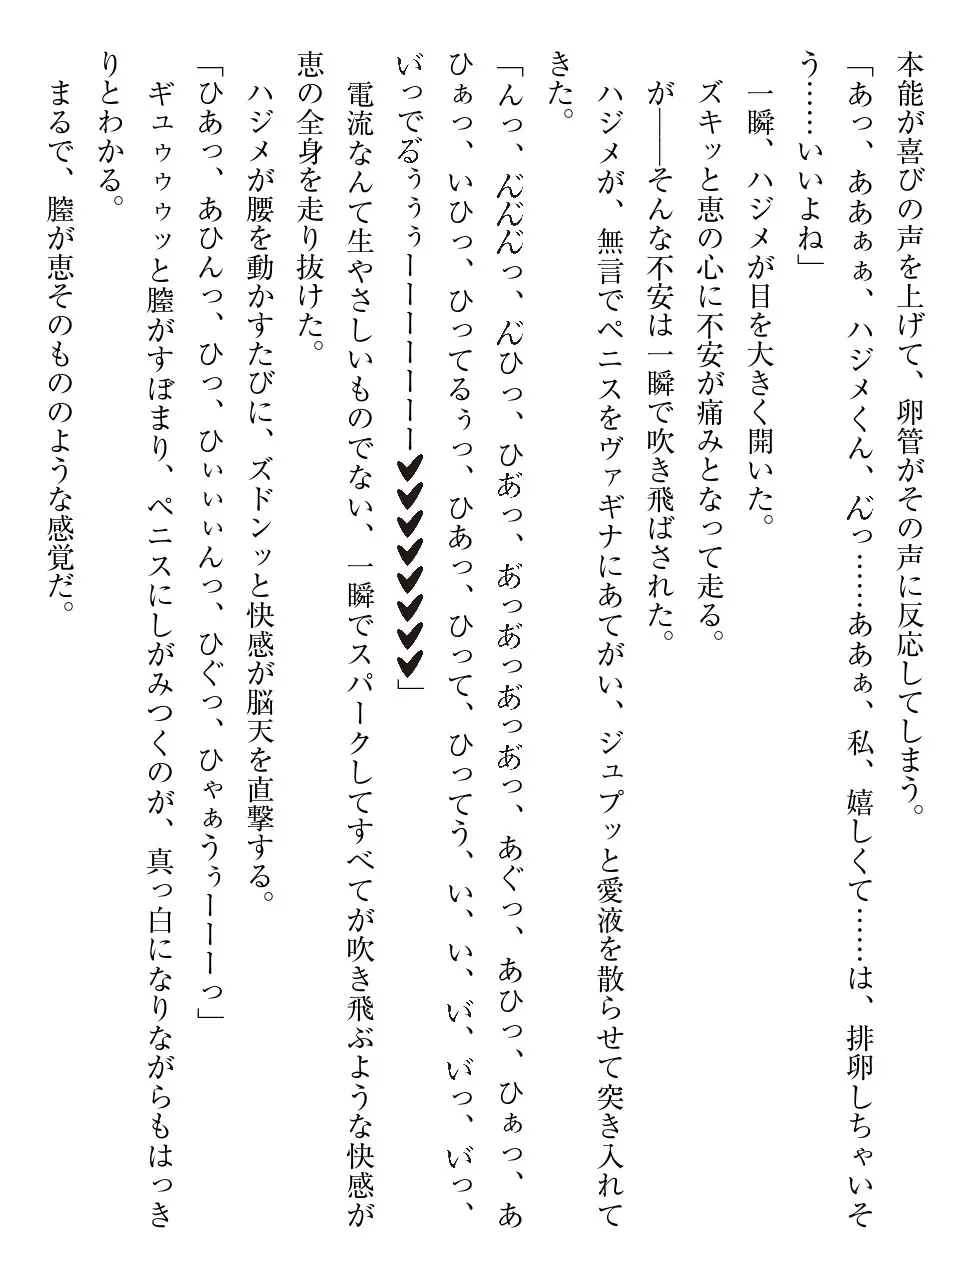 本能が喜びの声を上げて、卵管がその声に反応してしまう。
「あっ、ああぁぁ、ハジメくん、ん゛っ……ああぁ、私、嬉しくて……は、排卵しちゃいそ
う……いいよね」
一瞬、ハジメが目を大きく開いた。
ズキッと恵の心に不安が痛みとなって走る。
が――そんな不安は一瞬で吹き飛ばされた。
ハジメが、無言でペニスをヴァギナにあてがい、ジュプッと愛液を散らせて突き入れて
きた。
「んっ、ん゛ん゛ん゛っ、ん゛ひっ、ひあ゛っ、あ゛っあ゛っあ゛っあ゛っ、あぐっ、あひっ、ひぁっ、あ
ひぁっ、いひっ、ひってるぅっ、ひあっ、ひって、ひってう、い、い、い゛、い゛っ、い゛っ、
い゛っでる゛ぅぅぅーーーーーーー♥♥♥♥♥♥♥♥」
電流なんて生やさしいものでない、一瞬でスパークしてすべてが吹き飛ぶような快感が
恵の全身を走り抜けた。
ハジメが腰を動かすたびに、ズドンッと快感が脳天を直撃する。
「ひあっ、あひんっ、ひっ、ひぃぃぃんっ、ひぐっ、ひゃぁうぅーーーっ」
ギュゥゥゥッと膣がすぼまり、ペニスにしがみつくのが、真っ白になりながらもはっき
りとわかる。
まるで、膣が恵そのもののような感覚だ。